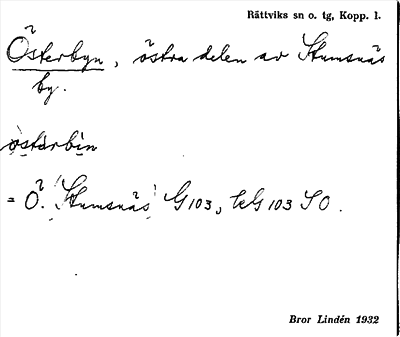 Rättviks sn o. tg, Kopp. l.
Österbyn, östra delen av Stumsnäs
by.
östərbin
= Ö. Stumsnäs G103, kG 103 SO.
Bror Lindén 1932